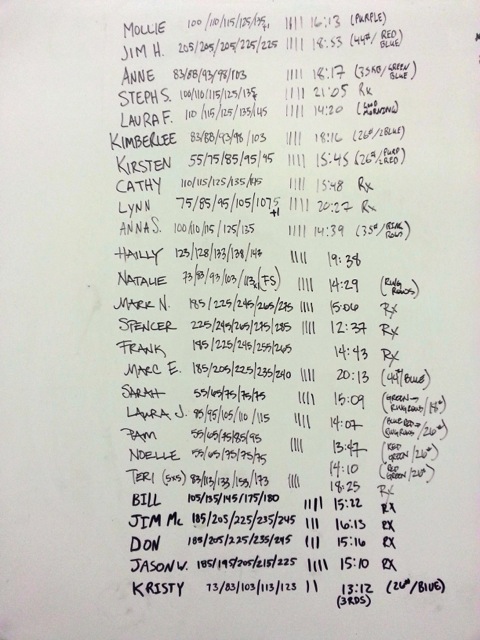 MOLLIE 100/110/115/125/135+1 |||| 16:13 (PURPLE)
JIM H. 205/205/205/225/225 |||| 18:53 (44#/RED BLUE)
ANNE 83/88/93/98/103 |||| 18:17 (35#/GREEN BLUE)
STEPH S. 100/110/115/125/135 |||| 21:05 RX
LAURA F. 110/115/125/135/145 |||| 14:20 (GOOD MORNING)
KIMBERLEE 83/88/93/98/103 |||| 18:16 (26#/2BLUE)
KIRSTEN 55/75/85/95/95 |||| 15:45 (26#/PURP RED)
CATHY 110/115/125/135/145 |||| 15:48 RX
LYNN 75/85/95/105/107.5+1 |||| 20:27 RX
ANNA S. 100/110/115/125/135 |||| 14:39 (35#/RING ROWS)
HAILLY 123/128/133/138/143 |||| 19:38
NATALIE 73/83/93/103/113 (FS) |||| 14:29 (RING ROWS)
MARK N. 185/225/245/265/275 |||| 15:06 RX
SPENCER 225/245/265/275/285 |||| 12:37 RX
FRANK 185/225/245/255/265 14:43 RX
MARC E. 185/205/225/235/240 |||| 20:13 (44#/BLUE)
SARAH 55/65/75/75/75 |||| 15:09 (GREEN→ RING ROWS/18#)
LAURA J. 85/95/105/110/115 |||| 14:07 (BLUE RED→ RING ROWS/26#)
PAM 55/65/75/85/95 |||| 13:47 (RED GREEN/26#)
NOELLE 55/65/75/75/75 14:10 (RED GREEN/26#)
TERI (5x5) 83/113/133/153/173 |||| 18:25 RX
BILL 105/135/145/175/180 |||| 15:22 RX
JIM Mc 185/205/225/235/245 |||| 16:13 RX
DON 185/205/225/235/245 ||| 15:16 RX
JASON W. 185/195/205/215/225 |||| 15:10 RX
KRISTY 73/83/103/113/123 || 13:12 (26#/BLUE)
(3RDS)